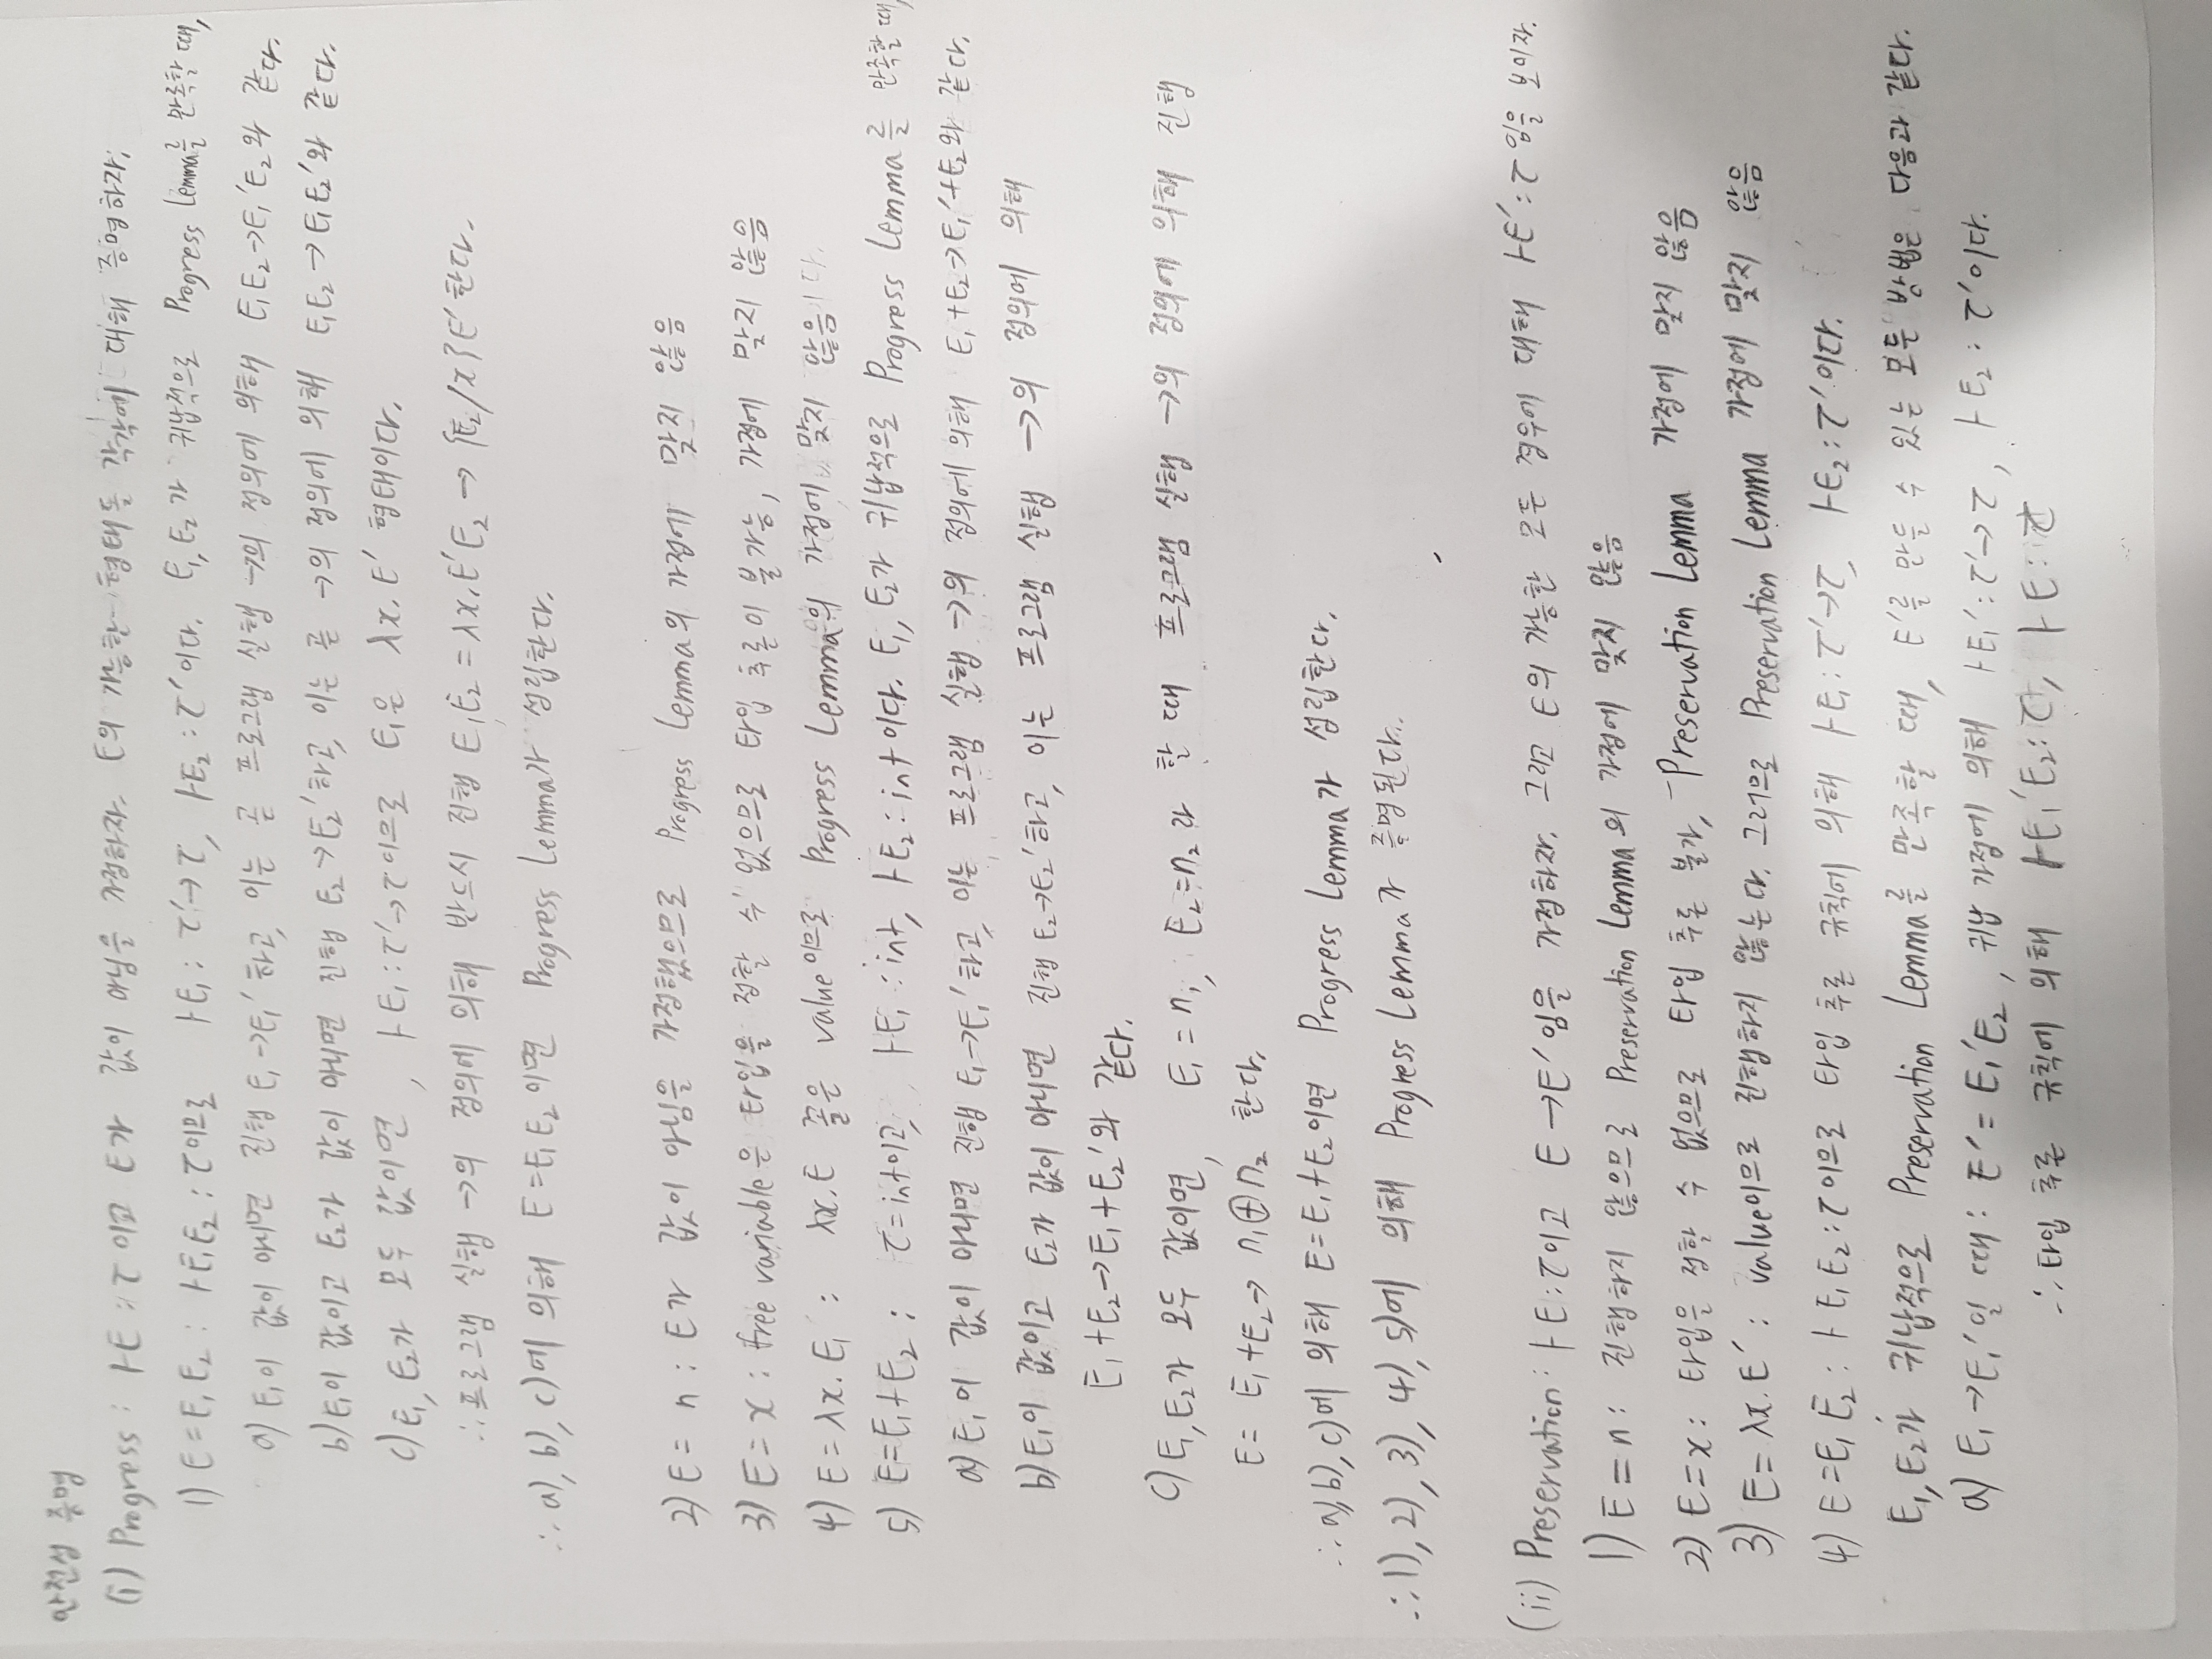 안전성 증명
(i) Progress : ⊢E : τ 이고 E가 값이 아님을 가정하자. E의 가능한 형태들 각각에 대해 증명하자;
1) E = E₁ E₂ : ⊢E₁E₂ : τ이므로 ⊢E₁ : τ'→τ, ⊢E₂ : τ' 이다. E₁, E₂가 귀납적으로 Progress Lemma를 만족할 때,
a) E₁이 값이 아니면 진행 E₁→E₁' 하고, 이는 곧 프로그램 실행 →의 정의에 의해 E₁E₂→E₁'E₂와 같다.
b) E₁이 값이고 E₂가 값이 아니면 진행 E₂→E₂'하고, 이는 곧 →의 정의에 의해 E₁E₂→E₁E₂'와 같다.
c) E₁, E₂가 모두 값이면, ⊢E₁ : τ'→τ이므로 E₁은 λx.E' 형태이다.
∴ 프로그램 실행 →의 정의에 의해 반드시 진행 E₁E₂ = λx.E'E₂ → {E₂/x}E' 한다.
∴ a), b), c)에 의해 E=E₁E₂이면 Progress Lemma가 성립한다.
2) E = n : E가 값이 아님을 가정했으므로 Progress Lemma의 가정에 맞지 않음
3) E = x : free variable은 타입을 정할 수 없으므로 타입 추론이 불가능, 가정에 맞지 않음
4) E = λx. E₁ : λx.E 꼴은 value이므로 Progress Lemma의 가정에 맞지 않음
5) E=E₁+E₂ : τ=int이고, ⊢E₁ : int, ⊢E₂ : int이다. E₁, E₂가 귀납적으로 Progress Lemma를 만족할 때,
a) E₁이 값이 아니면 진행 E₁→E₁'하고, 이는 프로그램 실행 →의 정의에 의해 E₁+E₂→E₁'+E₂와 같다.
b) E₁이 값이고 E₂가 값이 아니면 진행 E₂→E₂'하고, 이는 프로그램 실행 →의 정의에 의해
E₁+E₂→E₁+E₂'와 같다.
c) E₁, E₂가 모두 값이면, E₁ = n₁, E₂=n₂라 할 때 프로그램 실행 →의 정의에 의해 진행
E = E₁+E₂→ n₁⊕n₂ 한다.
∴ a), b), c)에 의해 E=E₁+E₂이면 Progress Lemma가 성립한다.
∴ 1), 2), 3), 4), 5)에 의해 Progress Lemma가 증명된다.
(ii) Preservation : ⊢E : τ이고 E→E'임을 가정하자. 그리고 E의 가능한 모든 경우에 대해 ⊢E' : τ임을 보이자.
1) E = n : 진행하지 않으므로 Preservation Lemma의 가정에 맞지 않음
2) E = x : 타입을 정할 수 없으므로 타입 추론 불가, Preservation Lemma 가정에 맞지 않음
3) E = λx.E' : value이므로 진행하지 않는다. 그러므로 Preservation Lemma 가정에 맞지 않음
4) E = E₁ E₂ : ⊢E₁E₂ : τ이므로 타입 추론 규칙에 의해 ⊢E₁ : τ'→τ, ⊢E₂ : τ'이다.
E₁, E₂가 귀납적으로 Preservation Lemma를 만족할 때, E'를 만들 수 있는 모든 방법은 다음과 같다.
a) E₁→E₁'일 때 : E' = E₁'E₂, 귀납 가정에 의해 ⊢E₁' : τ'→τ, ⊢E₂ : τ'이다.
∴ 타입 추론 규칙에 의해 ⊢E₁'E₂ : τ, ⊢E : τ